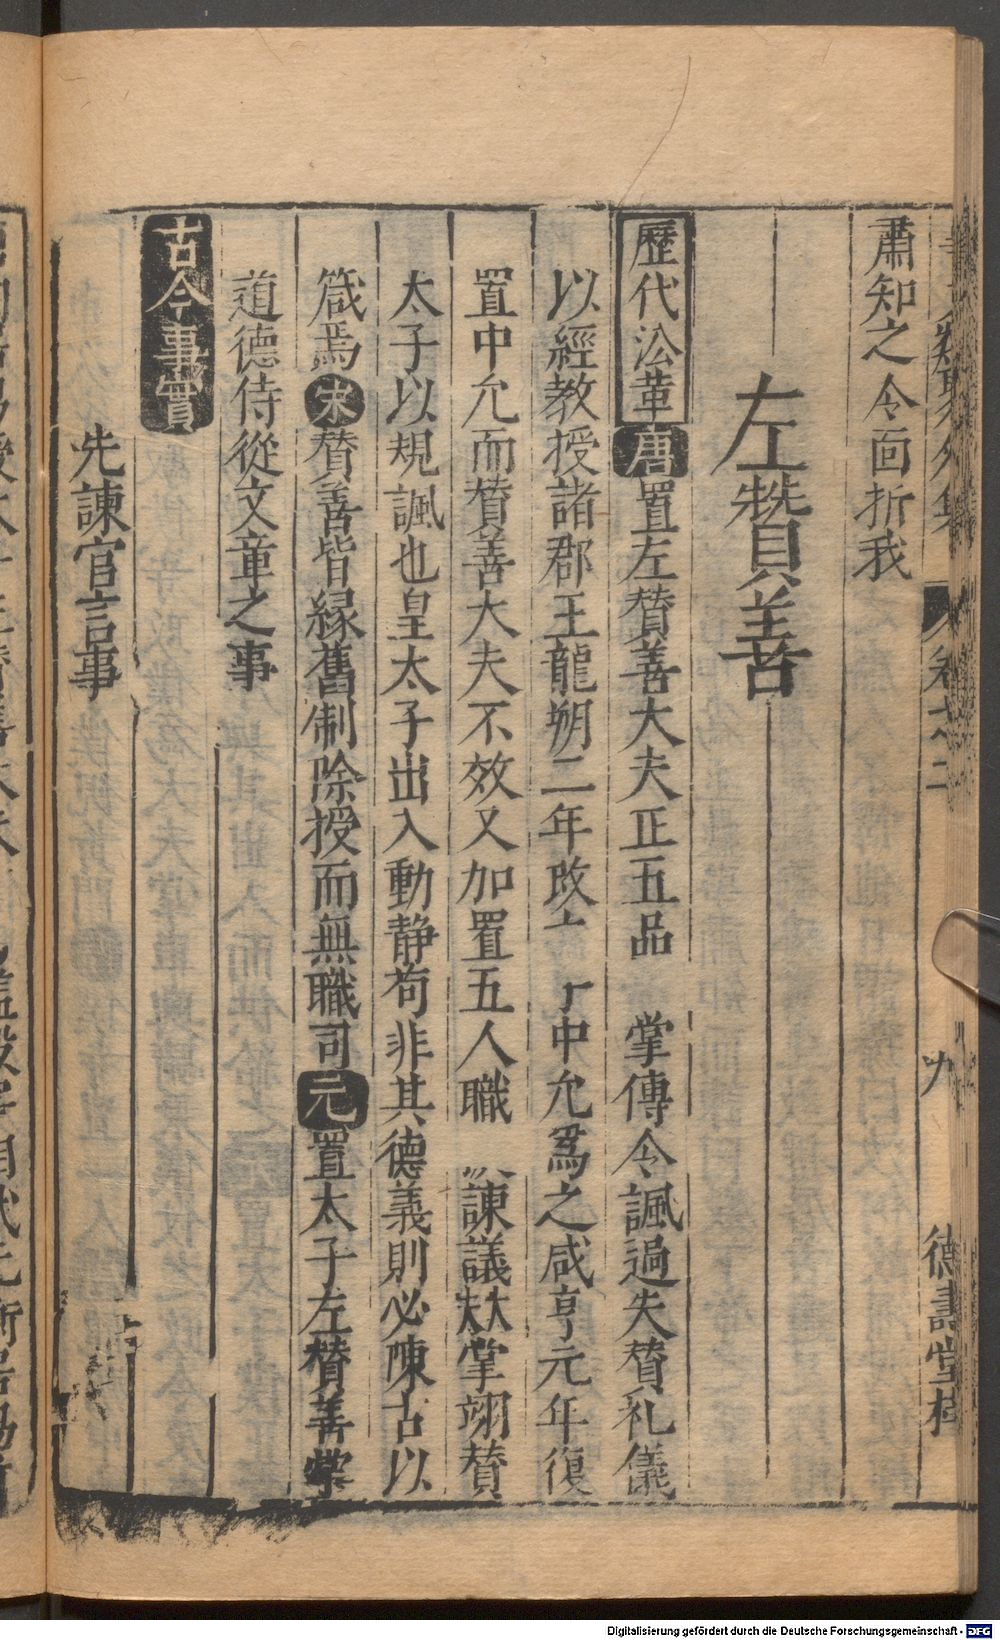 肅知之令面折我
左贊善
歷代㳂革唐置左賛善大夫正五品 掌傳令諷過失賛礼儀
以經教授諸郡王龍朔二年改 中允爲之咸亨元年復
置中允而賛善大夫不效又加置五人職 諫議大夫掌翊賛
太子以規諷也皇太子出入動静苟非其德義則必陳古以
箴焉宋賛善皆緣舊制除授而無職司元置太子左賛善掌
道德侍從文章之事
古今事實
先諫官言事
九
德壽堂梓
Digitalisierung gefördert durch die Deutsche Forschungsgemeinschaft - DFG